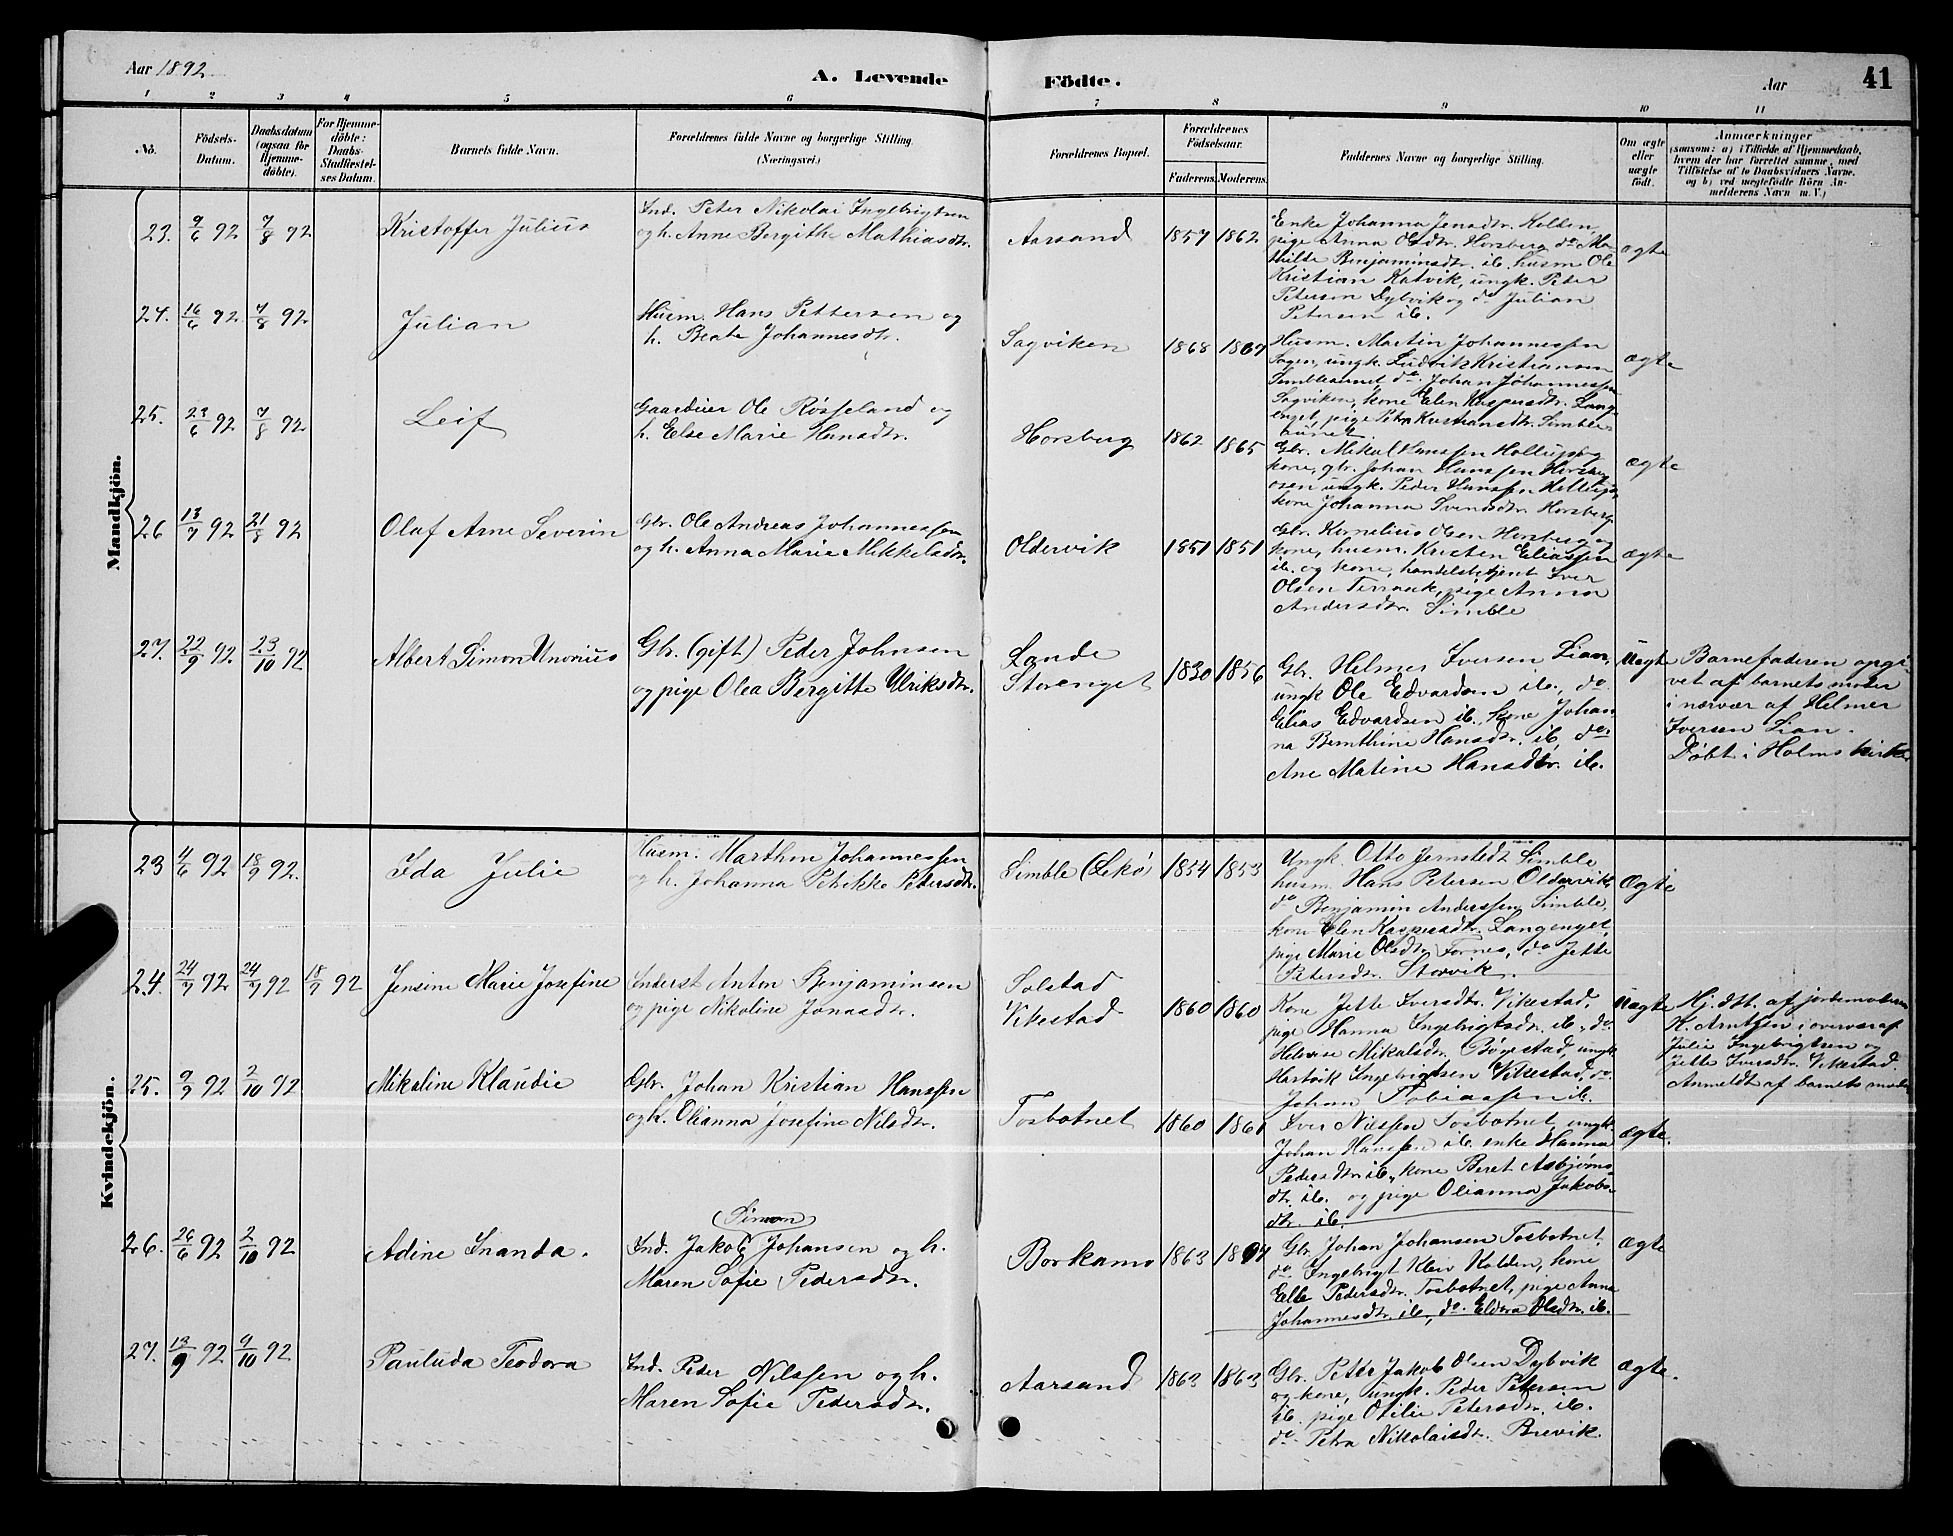 Aar 1892
A. Levende Födte.
Aar 41
1 2 3 4 5 6 7 8 9 10 11
No. Födsels-Datum. Daabsdatum (ogsaa for Hjemme-döbte). For Hjemme-döbte: Daabs-Stadfæstel-ses Datum. Barnets fulde Navn. Forældrenes fulde Navne og borgerlige Stilling. (Næringsvei.) Forældrenes Bopæl. Forældrenes Födselsaar. Faderens. Moderens. Faddernes Navne og borgerlige Stilling. Om ægte eller uægte födt. Anmærkninger (saasom: a) i Tilfælde af Hjemmedaab, hvem der har forrettet samme, med Tilföielse af to Daabsvidners Navne, og b) ved uægtefödte Börn An-melderens Navn m. V.)
Mandkjön.
23. 9/6 92 7/8 92 Kristoffer Julius
Ind. Peter Nikolai Ingebrigtsen
og h. Anne Bergithe Mathiasdtr.
Aarsand 1857 1862
Enke Johanna Jensdtr. Kolden,
pige Anna Olsdtr. Horsberg, do Ma-
thilde Benjaminsdtr. ib. husm Ole
Kristian Katvik, ungk. Peter
Petersen Dybvik og do Julian
Petersen ib.
ægte
24. 16/6 92. 7/8 92. Julian
Husm. Hans Pettersen og
h. Beate Johannesdtr.
Sagviken 1868 1867
Husm. Martin Johannessen
Sagen, ungk. Ludvik Kristiansen
Simblesundet, do. Johan Johannessen
Sagviken, kone Elen Kaspersdtr. Lang-
enget, pige Petra Kristiansdtr. Simble-
sundet.
ægte
25. 23/6 92 7/8 92 Leif
Gaardeier Ole Røsseland og
h. Else Marie Hansdtr.
Horsberg 1862 1865
Gbr. Mikal Hanssen Hollup og
kone, gbr. Johan Hanssen Horsberg
osen ungk. Peder Hanssen Hollup,
kone Johanna Svensdtr. Horsberg.
ægte
26 13/7 92 21/8 92 Olaf Arne Severin
Gbr. Ole Andreas Johannessen
og h. Anna Marie Mikkelsdtr.
Oldervik 1851 1851
Gbr. Kornelius Olsen Horsberg og
kone, husm. Kristen Eliassen
ib. og kone, handelsbetjent Iver
Olsen Terraak, pige Anna
Andersdtr. Simble
ægte
27. 22/9 92. 23/10 92 Albert Simon Unonius
Gbr. (gift) Peder Johnsen
og pige Olea Bergitte Ulriksdtr.
Lande
Storenget 1830 1856
Gbr. Helmer Iversen Lian,
ungk Ole Edvardsen ib., do.
Elias Edvardsen ib., kone Johan-
na Bernthine Hansdtr. ib, do.
Ane Matine Hansdtr. ib.
Uægte
Barnefaderen opgi-
vet af barnets moder
i nærvær af Helmer
Iversen Lian.
Døbt i Holms kirke
Kvindekjön.
23 4/6 92 18/9 92. Ida Julie
Husm. Marthin Johannessen
og h. Johanna Petrikke Petersdtr.
Simble (Lekø) 1854 1853
Ungk. Otto Jernstedt Simble
husm. Hans Petersen Oldervik,
do Benjamin Anderssen Simble,
kone Elen Kaspersdtr. Langenget,
pige Marie Olsdtr. Fornes, do Jette
Petersdtr. Storvik.
Ægte
24. 24/7 92 24/7 92 18/9 92 Jensine Marie Josefine
Inderst Anton Benjaminsen
og pige Nikoline Jonasdtr.
Solstad
Vikestad 1860 1860
Kone Jette Iversdtr. Vikestad,
pige Hanna Ingebrigtsdtr. ib., do.
Helvise Mikalsdtr. Bøgestad, ungk.
Hartvik Ingebrigtsen Vikestad, do.
Johan Tobiassen ib.
Uægte
Hj. dbt. af jordemoderen
K. Arntsen i overvær af
Julie Ingebrigtsen og
Jette Iversdtr. Vikestad.
Anmeldt af barnets moder
25. 9/7 92 2/10 92 Mikaline Klaudie
Gbr. Johan Kristian Hanssen
og h. Olianna Josefine Nilsdtr.
Tosbotnet 1860 1861
Iver Nilssen Tosbotnet, ungk.
Johan Hanssen ib. enke Hanna
Pedersdtr. ib., kone Beret Asbjørns-
dtr. ib. og pige Olianna Jakobs-
dtr. ib.
ægte.
26. 26/6 92 2/10 92 Adine Inanda.
Simon
Ind. Jakob Johansen og h.
Maren Sofie Pedersdtr.
Borkamo 1863
Gbr. Johan Johansen Tosbotnet,
do Ingebrigt Kleiv Kolden, kone
Elle Pedersdtr. Tosbotnet, pige Anna
Johannesdtr. ib., do. Eldora Olsdtr. ib.
Ægte
27. 13/9 92 9/10 92 Pauluda Teodora
Ind. Peder Nilssen og h.
Maren Sofie Pedersdtr.
Aarsand 1863 1863
Gbr. Petter Jakob Olsen Dybvik
og kone, ungk. Peder Petersen
ib. pige Otilie Petersdtr. ib.
do. Petra Nikolaisdtr. Brevik.
Ægte.